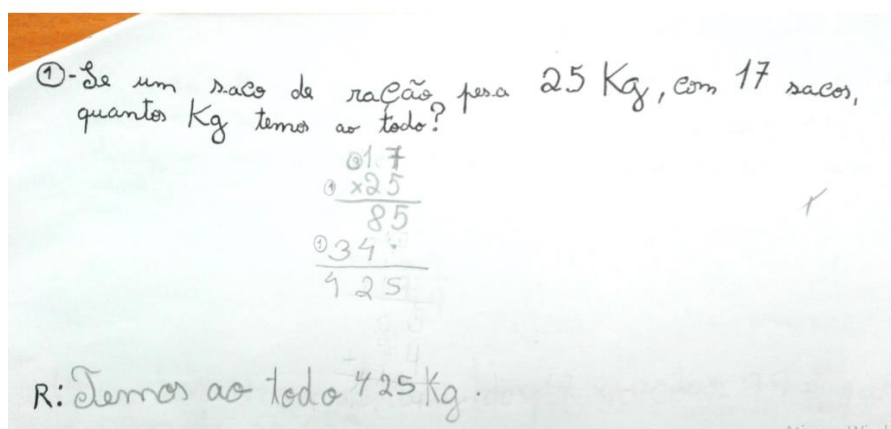 ①-Se um saco de ração pesa 25 Kg, com 17 sacos,
quantos Kg temos ao todo?
③17
① x25
85
①34.
425
R: Temos ao todo 425 Kg.